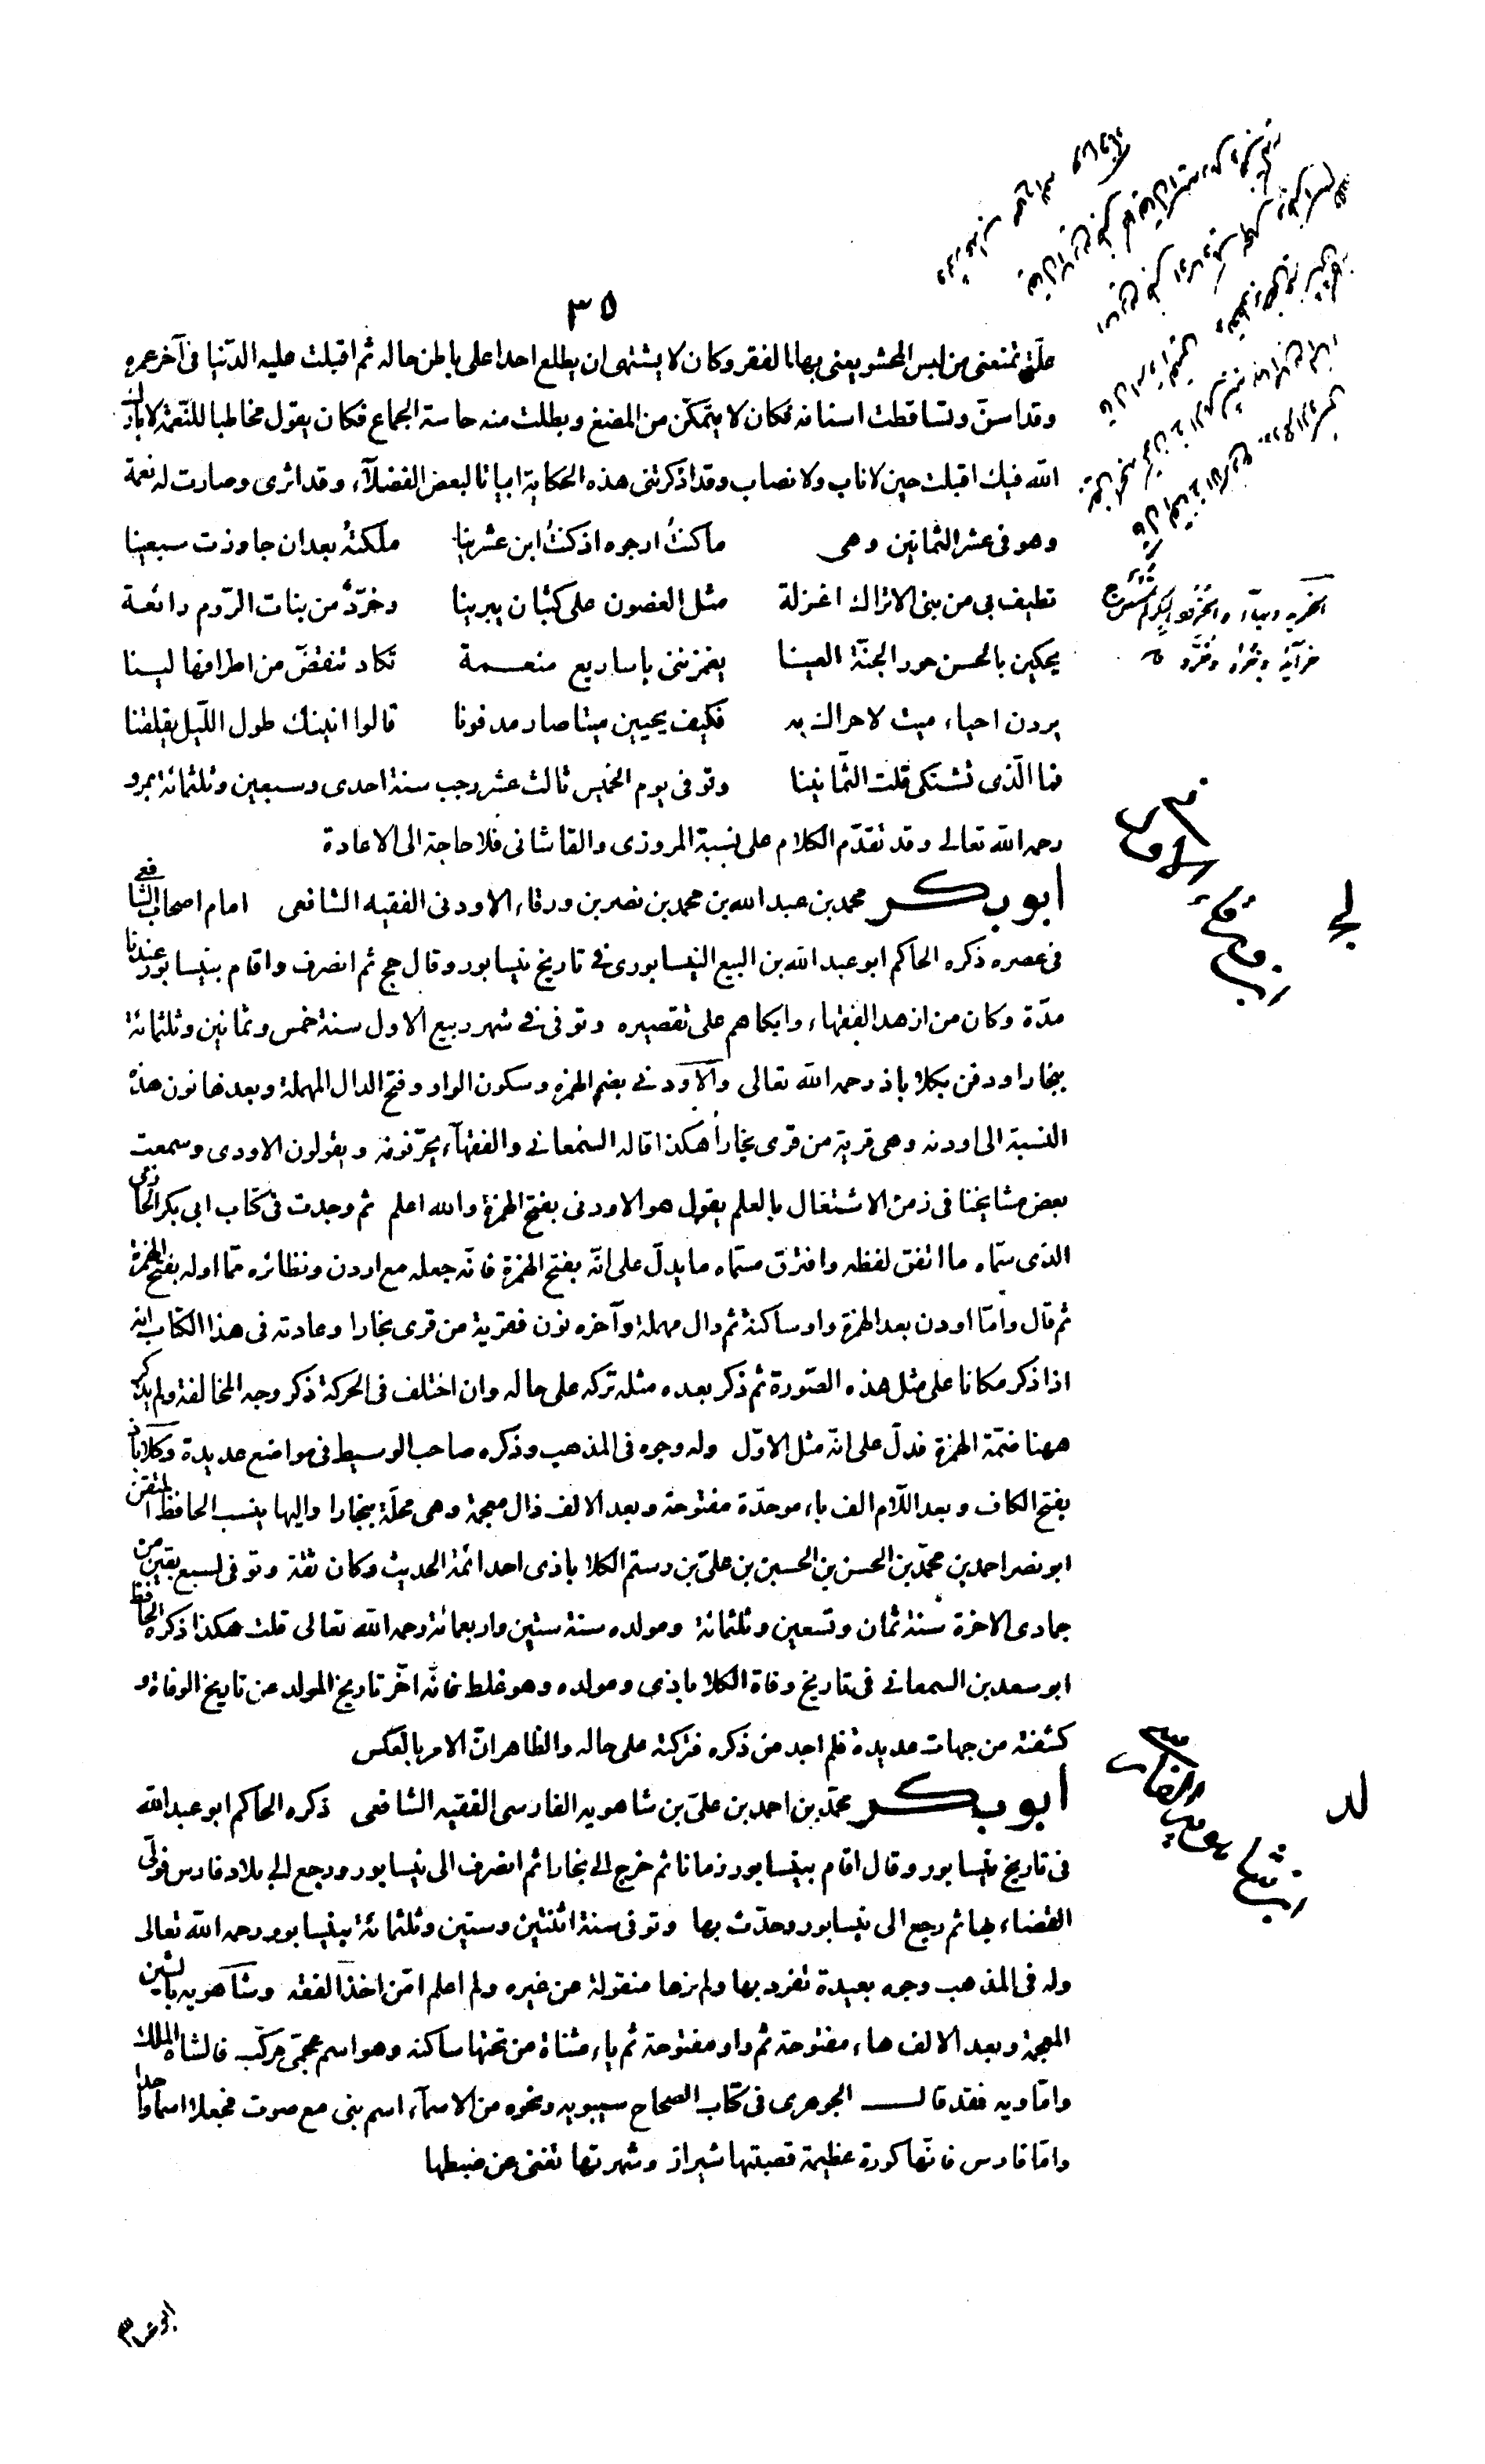 ٣٥
علّة تمنعنى من لبس المحشو يعنى بها الفقر وكان لا يشتهى ان يطلع احدا على باطن حاله ثم اقبلت عليه الدّنيا فى آخر عمره
وقد اسنّ وتساقطت اسنانه فكان لا يتمكّن من المضغ وبطلت منه حاسة الجماع فكان يقول مخاطبا للنّعمة لا بارك
الله فيك اقبلت حين لا ناب ولا نصاب وقد اذكرتنى هذه الحكاية ابياتا لبعض الفضلآء وقد اثرى وصارت له نعمة
وهو فى عشر الثمانين وهى ما كنتُ ارجوه اذ كنتُ ابن عشرينا ملكتهُ بعد ان جاوزت سبعينا
تطيف بى من بنى الاتراك اغزلة مثل الغصون على كثبان يبرينا وخرّدٌ من بنات الرّوم رائعة
يحكين بالحسن حور الجنّة العينا يغمزننى باساريع منعمة تكاد تنقضّ من اطرافها لينا
يردن احياء ميت لا حراك به فكيف يحيين ميتا صار مدفونا قالوا انينك طول اللّيل يقلقنا
فما الّذى تشتكى قلت الثّمانينا وتوفى يوم الخميس ثالث عشر رجب سنة احدى وسبعين وثلثمائة بمرو
رحمه الله تعالى وقد تقدّم الكلام على نسبة المروزى والقاشانى فلا حاجة الى الاعادة
ابو بكر محمد بن عبد الله بن محمد بن نصر بن ورقاء الاودنى الفقيه الشافعى امام اصحاب الشافعى
فى عصره ذكره الحاكم ابو عبد الله بن البيع النيسابورى فى تاريخ نيسابور وقال حج ثم انصرف واقام بنيسابور عندنا
مدّة وكان من ازهد الفقهاء وابكاهم على تقصيره وتوفى فى شهر ربيع الاول سنة خمس وثمانين وثلثمائة
ببخارا ودفن بكلاباذ رحمه الله تعالى والاودنى بضم الهمزه وسكون الواو وفتح الدال المهملة وبعدها نون هذه
النسبة الى اودنه وهى قرية من قرى بخارا هكذا قاله السمعانى والفقهآء يحرّفونه ويقولون الاودى وسمعت
بعض مشايخنا فى زمن الاشتغال بالعلم يقول هو الاودنى بفتح الهمزة والله اعلم ثم وجدت فى كتاب ابى بكر الحازمى
الذى سمّاه ما اتفق لفظه وافترق مسمّاه ما يدلّ على انّه بفتح الهمزة فانّه جعله مع اردن ونظائره ممّا اوله بفتح الهمزة
ثم قال وامّا اودن بعد الهمزة واو ساكنة ثم دال مهملة وآخره نون فقرية من قرى بخارا وعادته فى هذا الكتاب انه
اذا ذكر مكانا على مثل هذه الصّورة ثم ذكر بعده مثله تركه على حاله وان اختلف فى الحركة ذكر وجه المخالفة ولم يذكر
ههنا ضمّة الهمزة فدلّ على انّه مثل الاوّل وله وجوه فى المذهب وذكره صاحب الوسيط فى مواضع عديدة وكلاباذ
بفتح الكاف وبعد اللّام الف باء موحدّة مفتوحة وبعد الالف ذال معجمة وهى محلّة ببخارا واليها ينسب الحافظ المتقن
ابو نصر احمد بن محمّد بن الحسن بن الحسين بن علىّ بن رستم الكلاباذى احد ائمّة الحديث وكان ثقة وتوفى لسبع بقين من
جمادى الاخرة سنة ثمان وتسعين وثلثمائة ومولده سنة ستين واربعمائة رحمه الله تعالى قلت هكذا ذكره الحافظ
ابو سعد بن السمعانى فى تاريخ وفاة الكلاباذى ومولده وهو غلط فانّه اخّر تاريخ المولد عن تاريخ الوفاة و
كشفته من جهات عديدة فلم اجد من ذكره فتركته على حاله والظاهر انّ الامر بالعكس
ابو بكر محمّد بن احمد بن علىّ بن شاهويه الفارسى الفقيه الشافعى ذكره الحاكم ابو عبد الله
فى تاريخ نيسابور وقال اقام بنيسابور زمانا ثم خرج الى بخارا ثم انصرف الى نيسابور ورجع الى بلاد فارس فولّى
القضاء بها ثم رجع الى نيسابور وحدّث بها وتوفى سنة اثنتين وستين وثلثمائة بنيسابور رحمه الله تعالى
وله فى المذهب وجوه بعيدة تفرد بها ولم نرها منقولة عن غيره ولم اعلم امّن اخذ الفقه وشاهويه بالشين
المعجمة وبعد الالف هاء مفتوحة ثم واو مفتوحة ثم ياء مثناة من تحتها ساكنه وهو اسم عجمىّ مركّب فالشاه الملك
وامّا ويه فقد قال الجوهرى فى كتاب الصحاح سيبويه ونحوه من الاسمآء اسم بنى مع صوت فجعلا اسما واحدا
وامّا فارس فانّها كورة عظيمة قصبتها شيراز وشهرتها تغنى عن ضبطها
لج
لد